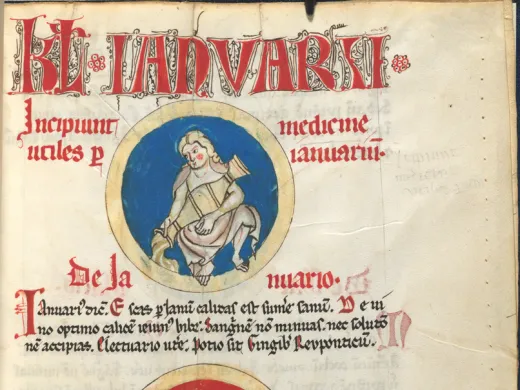 KL IANVARII
Incipiunt medicine
utiles p ianuariũ.
De Ia nuario.
Ianuari' diẽ. Escas p Ianuũ calidas est sumere sanũ. De ui
no optimo calicẽ ieiun' bibe. Sanguinẽ nõ minuas. nec solutõ
nẽ accipias. Electuario ute. Potio sit Gingib' Reuponticũ.